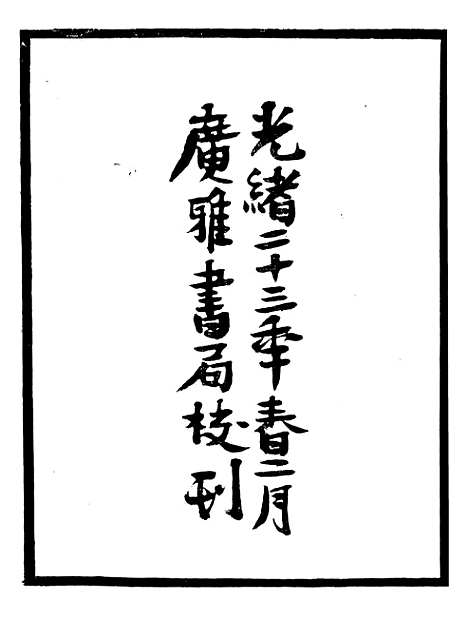 光緒二十三年春二月
廣雅書局校刊